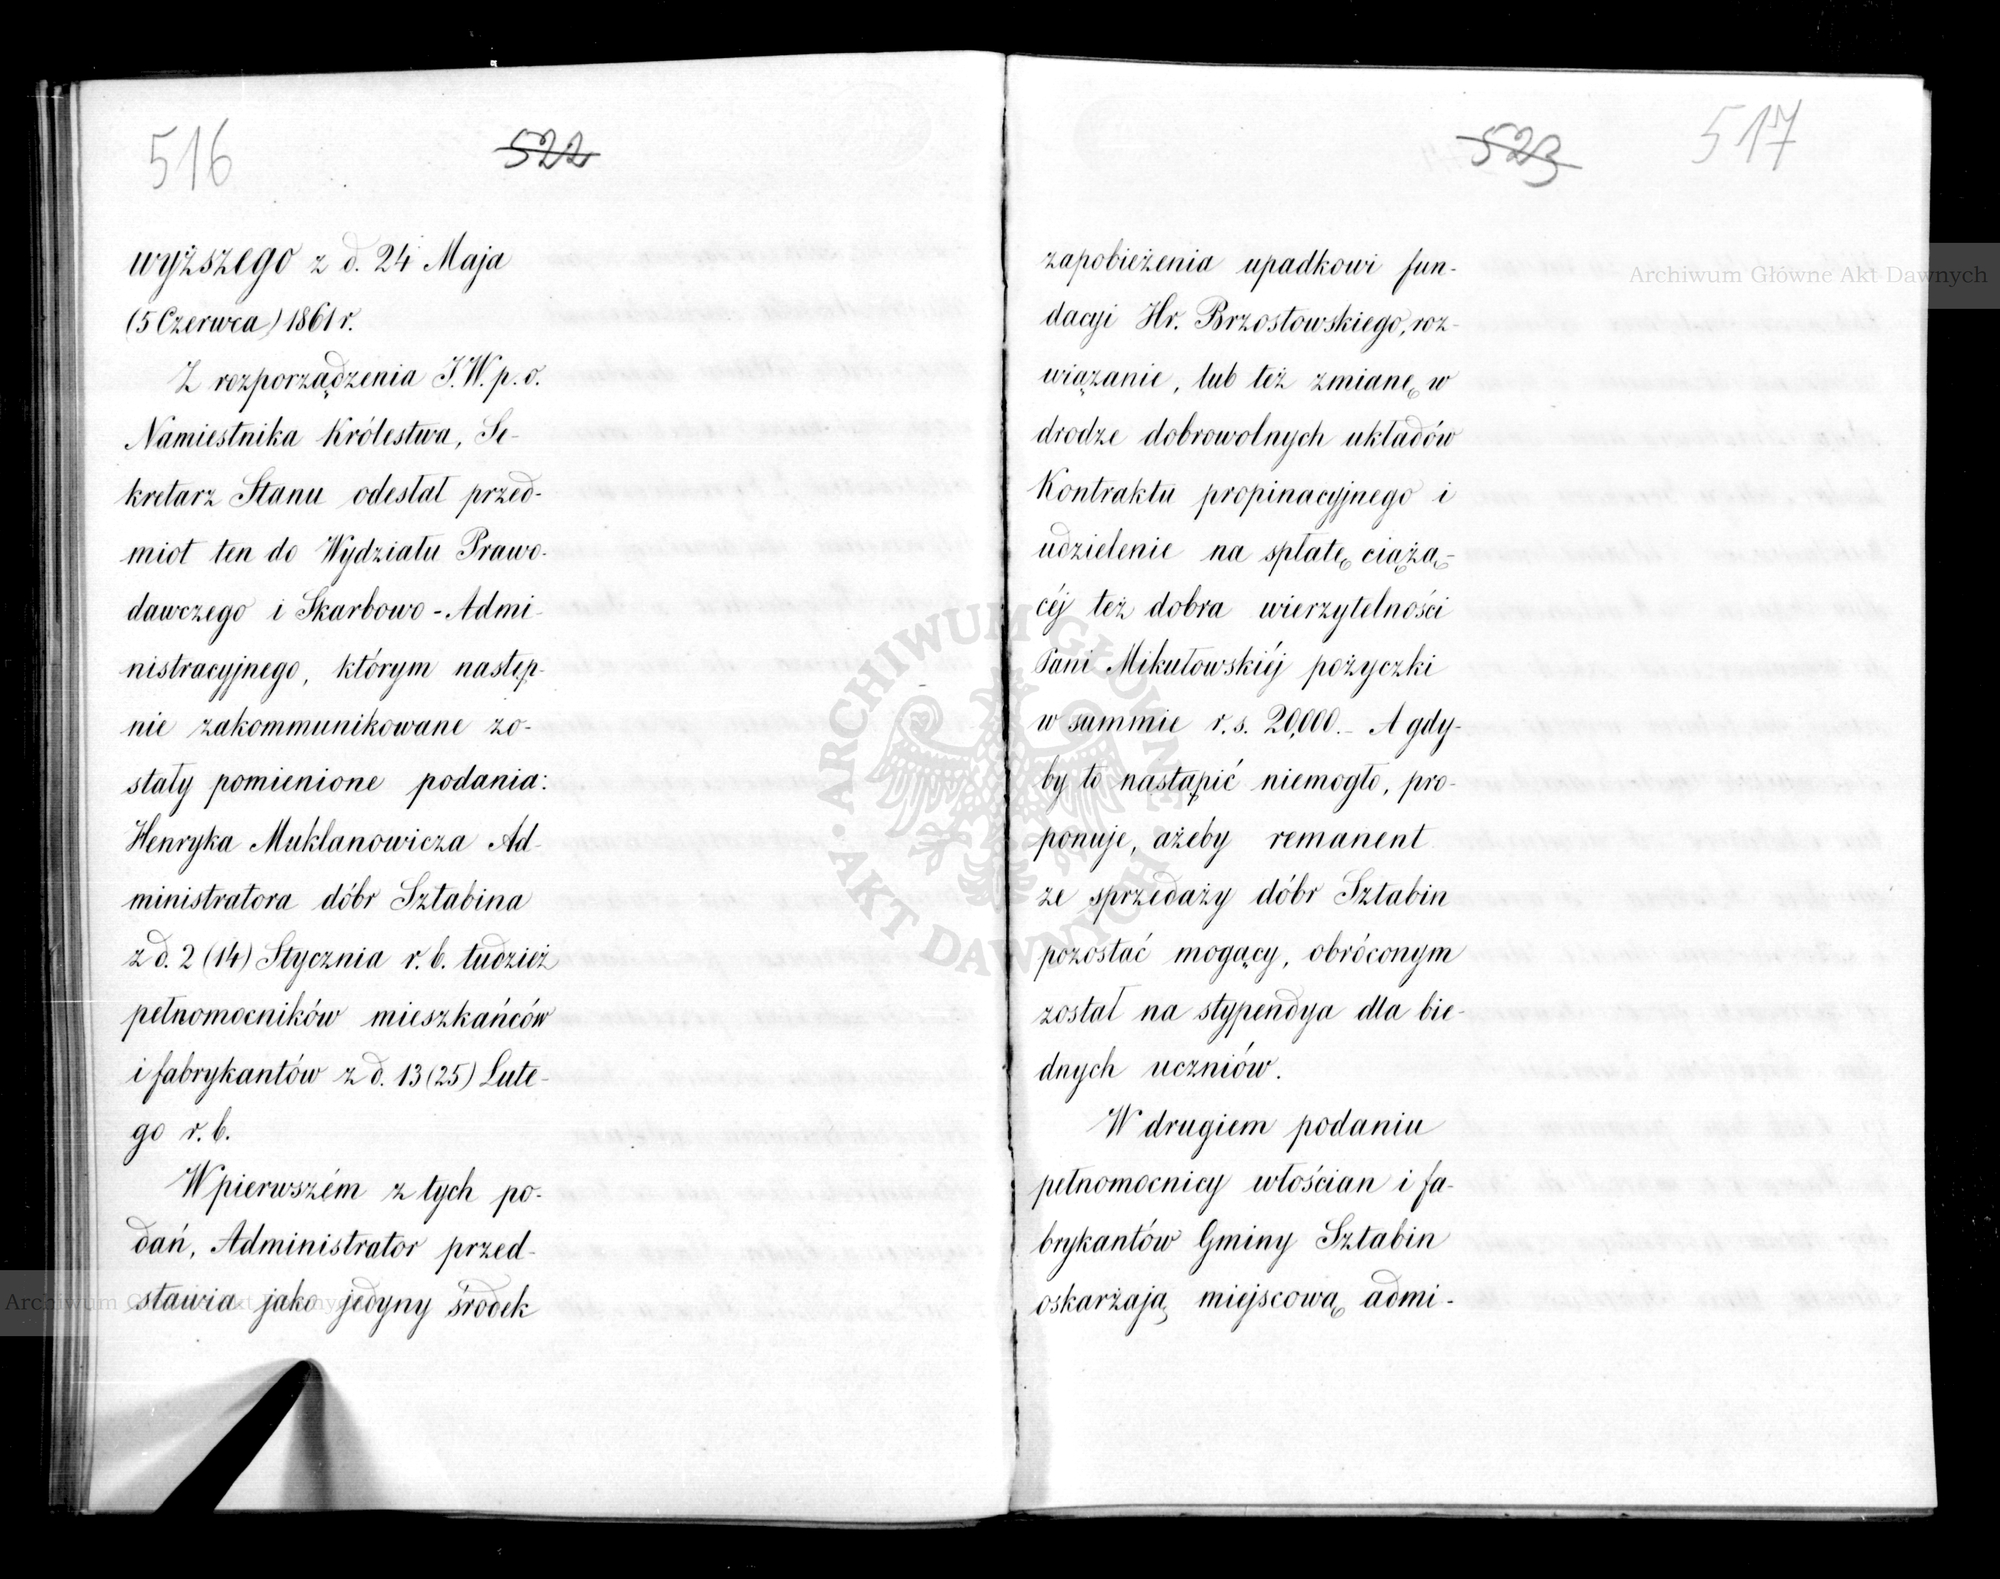 516
522
wyższego z d. 24 Maja
(5 Czerwca) 1861 r.
Z rozporządzenia J.W. p. o.
Namiestnika Królestwa, Se-
kretarz Stanu odesłał przed-
miot ten do Wydziału Prawo-
dawczego i Skarbowo-Admi-
nistracyjnego, którym następ-
nie zakommunikowane zo-
stały pomienione podania:
Henryka Muklanowicza Ad-
ministratora dóbr Sztabina
z d. 2 (14) Stycznia r. b. tudzież
pełnomocników mieszkańców
i fabrykantów z d. 13 (25) Lute-
go r. b.
W pierwszém z tych po-
dań, Administrator przed-
stawia jako jedyny środek
523
517
zapobieżenia upadkowi fun-
dacyi Hr. Brzostowskiego, roz-
wiązanie, lub też zmianę w
drodze dobrowolnych układów
Kontraktu propinacyjnego i
udzielenie na spłatę ciążą-
céj też dobra wierzytelności
Pani Mikułowskiéj pożyczki
w summie r. s. 20,000. – A gdy-
by to nastąpić niemogło, pro-
ponuje, ażeby remanent
ze sprzedaży dóbr Sztabin
pozostać mogący, obróconym
został na stypendya dla bie-
dnych uczniów.
W drugiem podaniu
pełnomocnicy włościan i fa-
brykantów Gminy Sztabin
oskarżają miejscową admi-
Archiwum Główne Akt Dawnych
Archiwum Główne Akt Dawnych
ARCHIWUM GŁÓWNE
AKT DAWNYCH